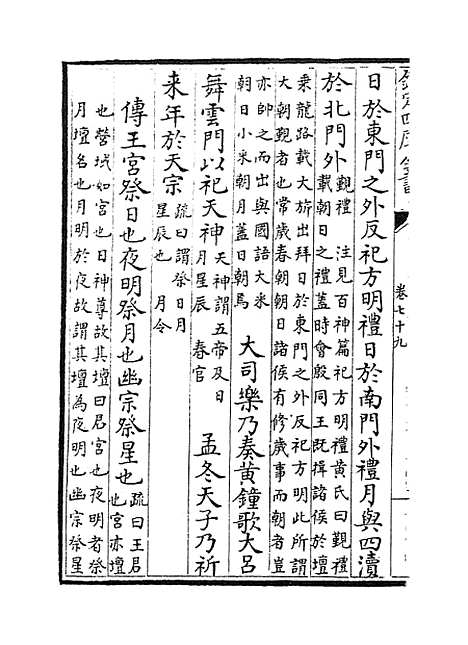 欽定四庫全書
卷七十九
日於東門之外反祀方明禮日於南門外禮月與四瀆
於北門外覲禮 注見百神篇祀方明禮黃氏曰覲禮
載朝日之禮蓋時會殷同王既揖諸侯於壇
乘龍路載大旂出拜日於東門之外反祀方明此所謂
大朝覲者也常歲春朝朝日諸侯有修歲事而朝者豈
亦帥之而出與國語大采
朝日小采朝月蓋日朝焉
大司樂乃奏黃鐘歌大呂
舞雲門以祀天神天神謂五帝及日
月星辰 春官
孟冬天子乃祈
来年於天宗疏曰謂祭日月
星辰也 月令
傳王宮祭日也夜明祭月也幽宗祭星也疏曰王君
也宮亦壇
也營域如宮也日神尊故其壇曰君宮也夜明者祭
月壇名也月明於夜故謂其壇為夜明也幽宗祭星